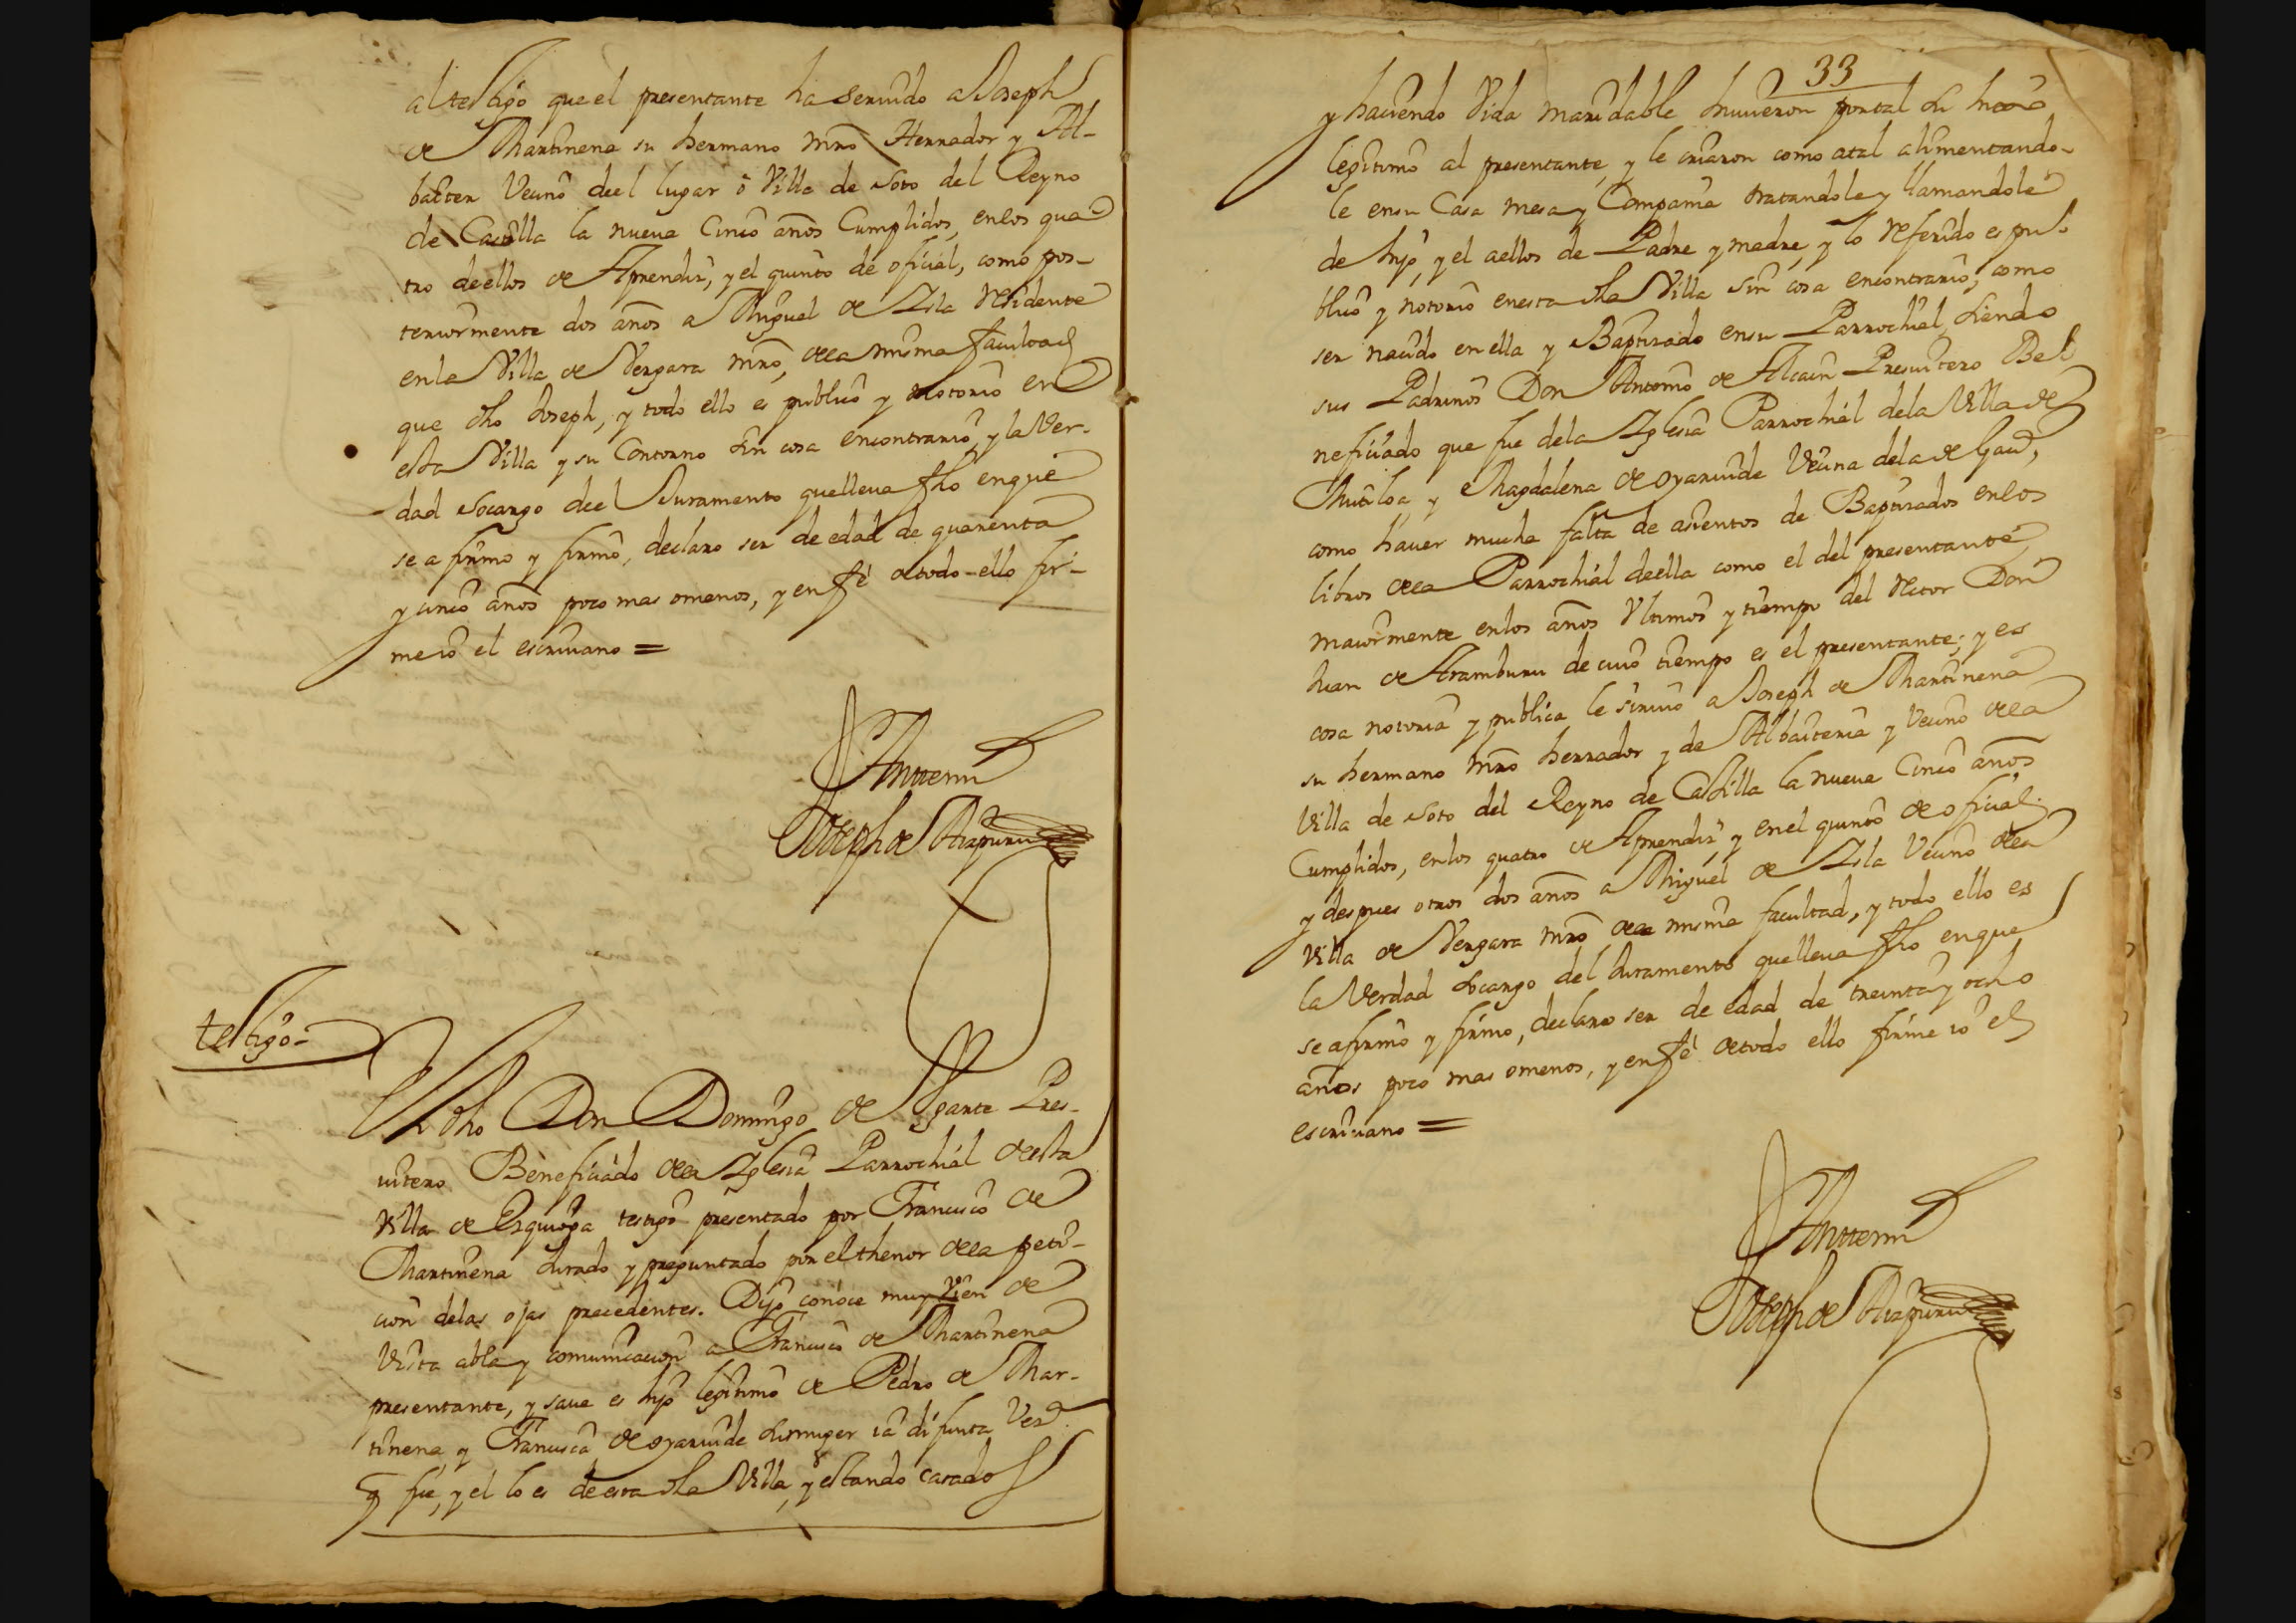 al testigo que el presentante ha seruido a Joseph
de Martinena su hermano mro Herrador y Al-
baiter Vecino deel lugar ô Villa de Soto del Reyno
de Castilla la nueua Cinco años Cumplidos, enlos qua
tro deellos de Aprendiz, y el quinto de oficial, como pos-
teriormente dos años a Miguel de Isla Residente
enla Villa de Vergara mro, dela misma facultad
que dho Joseph, y todo ello es publico y notorio en
esta Villa y su Contorno sin cosa encontrario, y la Ver-
dad socargo deel Juramento quelleua fho enque
se afirmo y firmô, declaro ser de edad de quarenta
y cinco años poco mas omenos, y enfé detodo ello fir-
me io el escriuano =
Anttemi
Joseph de Aizpuru
testigo-
El dho Don Domingo de Ygarte Pres-
uitero Beneficiado dela Iglesia Parrochial desta
Villa de Ezquioga testigo presentado por Francisco de
Martinena Jurado y preguntado por elthenor dela peti-
cion delas ojas precedentes. Dijo conoce muy Vien de
Vista abla y comunicacion a Francisco de Martinena
presentante, y saue es hijo legitimo de Pedro de Mar-
tinena y Francisca de oyaruide sumuger iâ difunta Vezª
q fue, y el lo es deesta dha Villa, y estando casados
33
y haciendo Vida maridable huuieron portal su hijo
legitimo al presentante, y le criaron como atal alimentando-
le ensu Casa mesa y Compania tratandole y llamandole
de hijo, y el aellos de Padre y madre, y lo referido es pu-
blico y notorio enesta dha Villa sin cosa encontrario, como
ser nacido en ella y Baptizado ensu Parrochial, siendo
sus Padrinos Don Antonio de Alcain Presuitero Be-
neficiado que fue dela Iglesia Parrochial dela Villa de
Mutiloa, y Magdalena de oyaruide Vecina dela de Gauª,
como hauer mucha falta de asientos de Baptizados enlos
libros dela Parrochial deella como el del presentante,
maiormente enlos años Vltimos y tiempo del Retor Don
Juan de Aramburu de cuio tiempo es el presentante; y es
cosa notoria y publica le siruio a Joseph de Martinena
su hermano mro herrador y de Albaiteria y Vecino dela
Villa de Soto del Reyno de Castilla la nueua Cinco años
Cumplidos, enlos quatro de Aprendiz, y enel quinto de oficial,
y despues otros dos años a Miguel de Isla Vecino dela
Villa de Vergara mro dela misma facultad, y todo ello es
la Verdad socargo del Juramento quelleua fho enque
se afirmô y firmo, declaro ser de edad de treinta y ocho
años poco mas omenos, y enfé detodo ello firme iô el
escriuano =
Anttemi
Joseph de Aizpuru